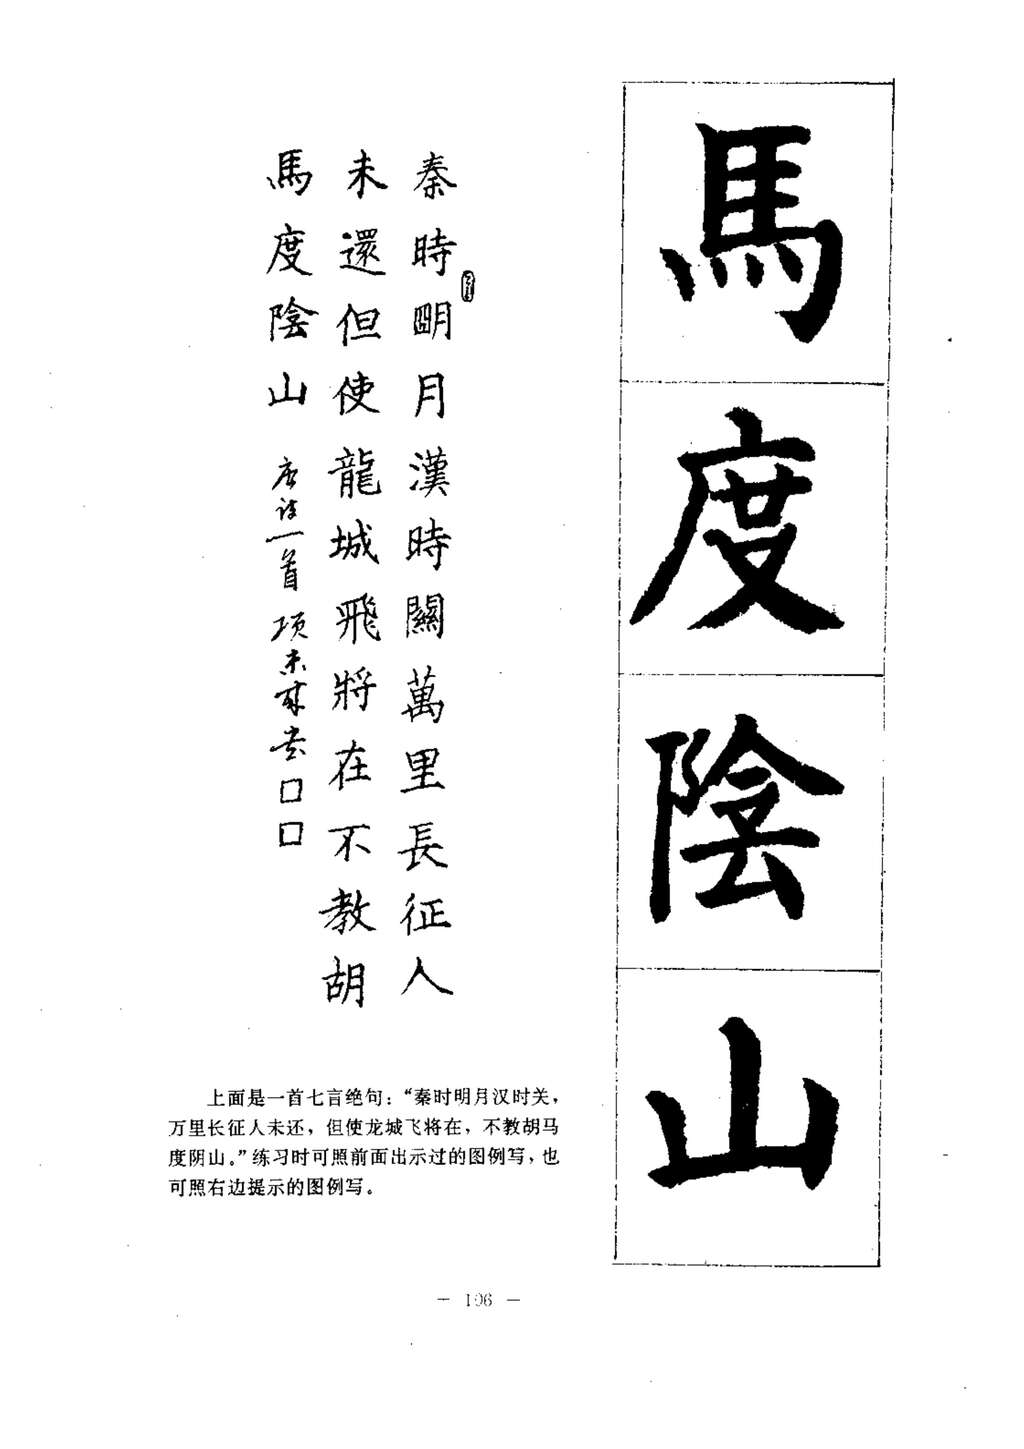 馬
度
陰
山
秦時明月漢時關萬里長征人
未還但使龍城飛將在不教胡
馬度陰山 唐詩一首 项未 书□□
上面是一首七言绝句：“秦时明月汉时关，
万里长征人未还，但使龙城飞将在，不教胡马
度阴山。”练习时可照前面出示过的图例写，也
可照右边提示的图例写。
— 106 —